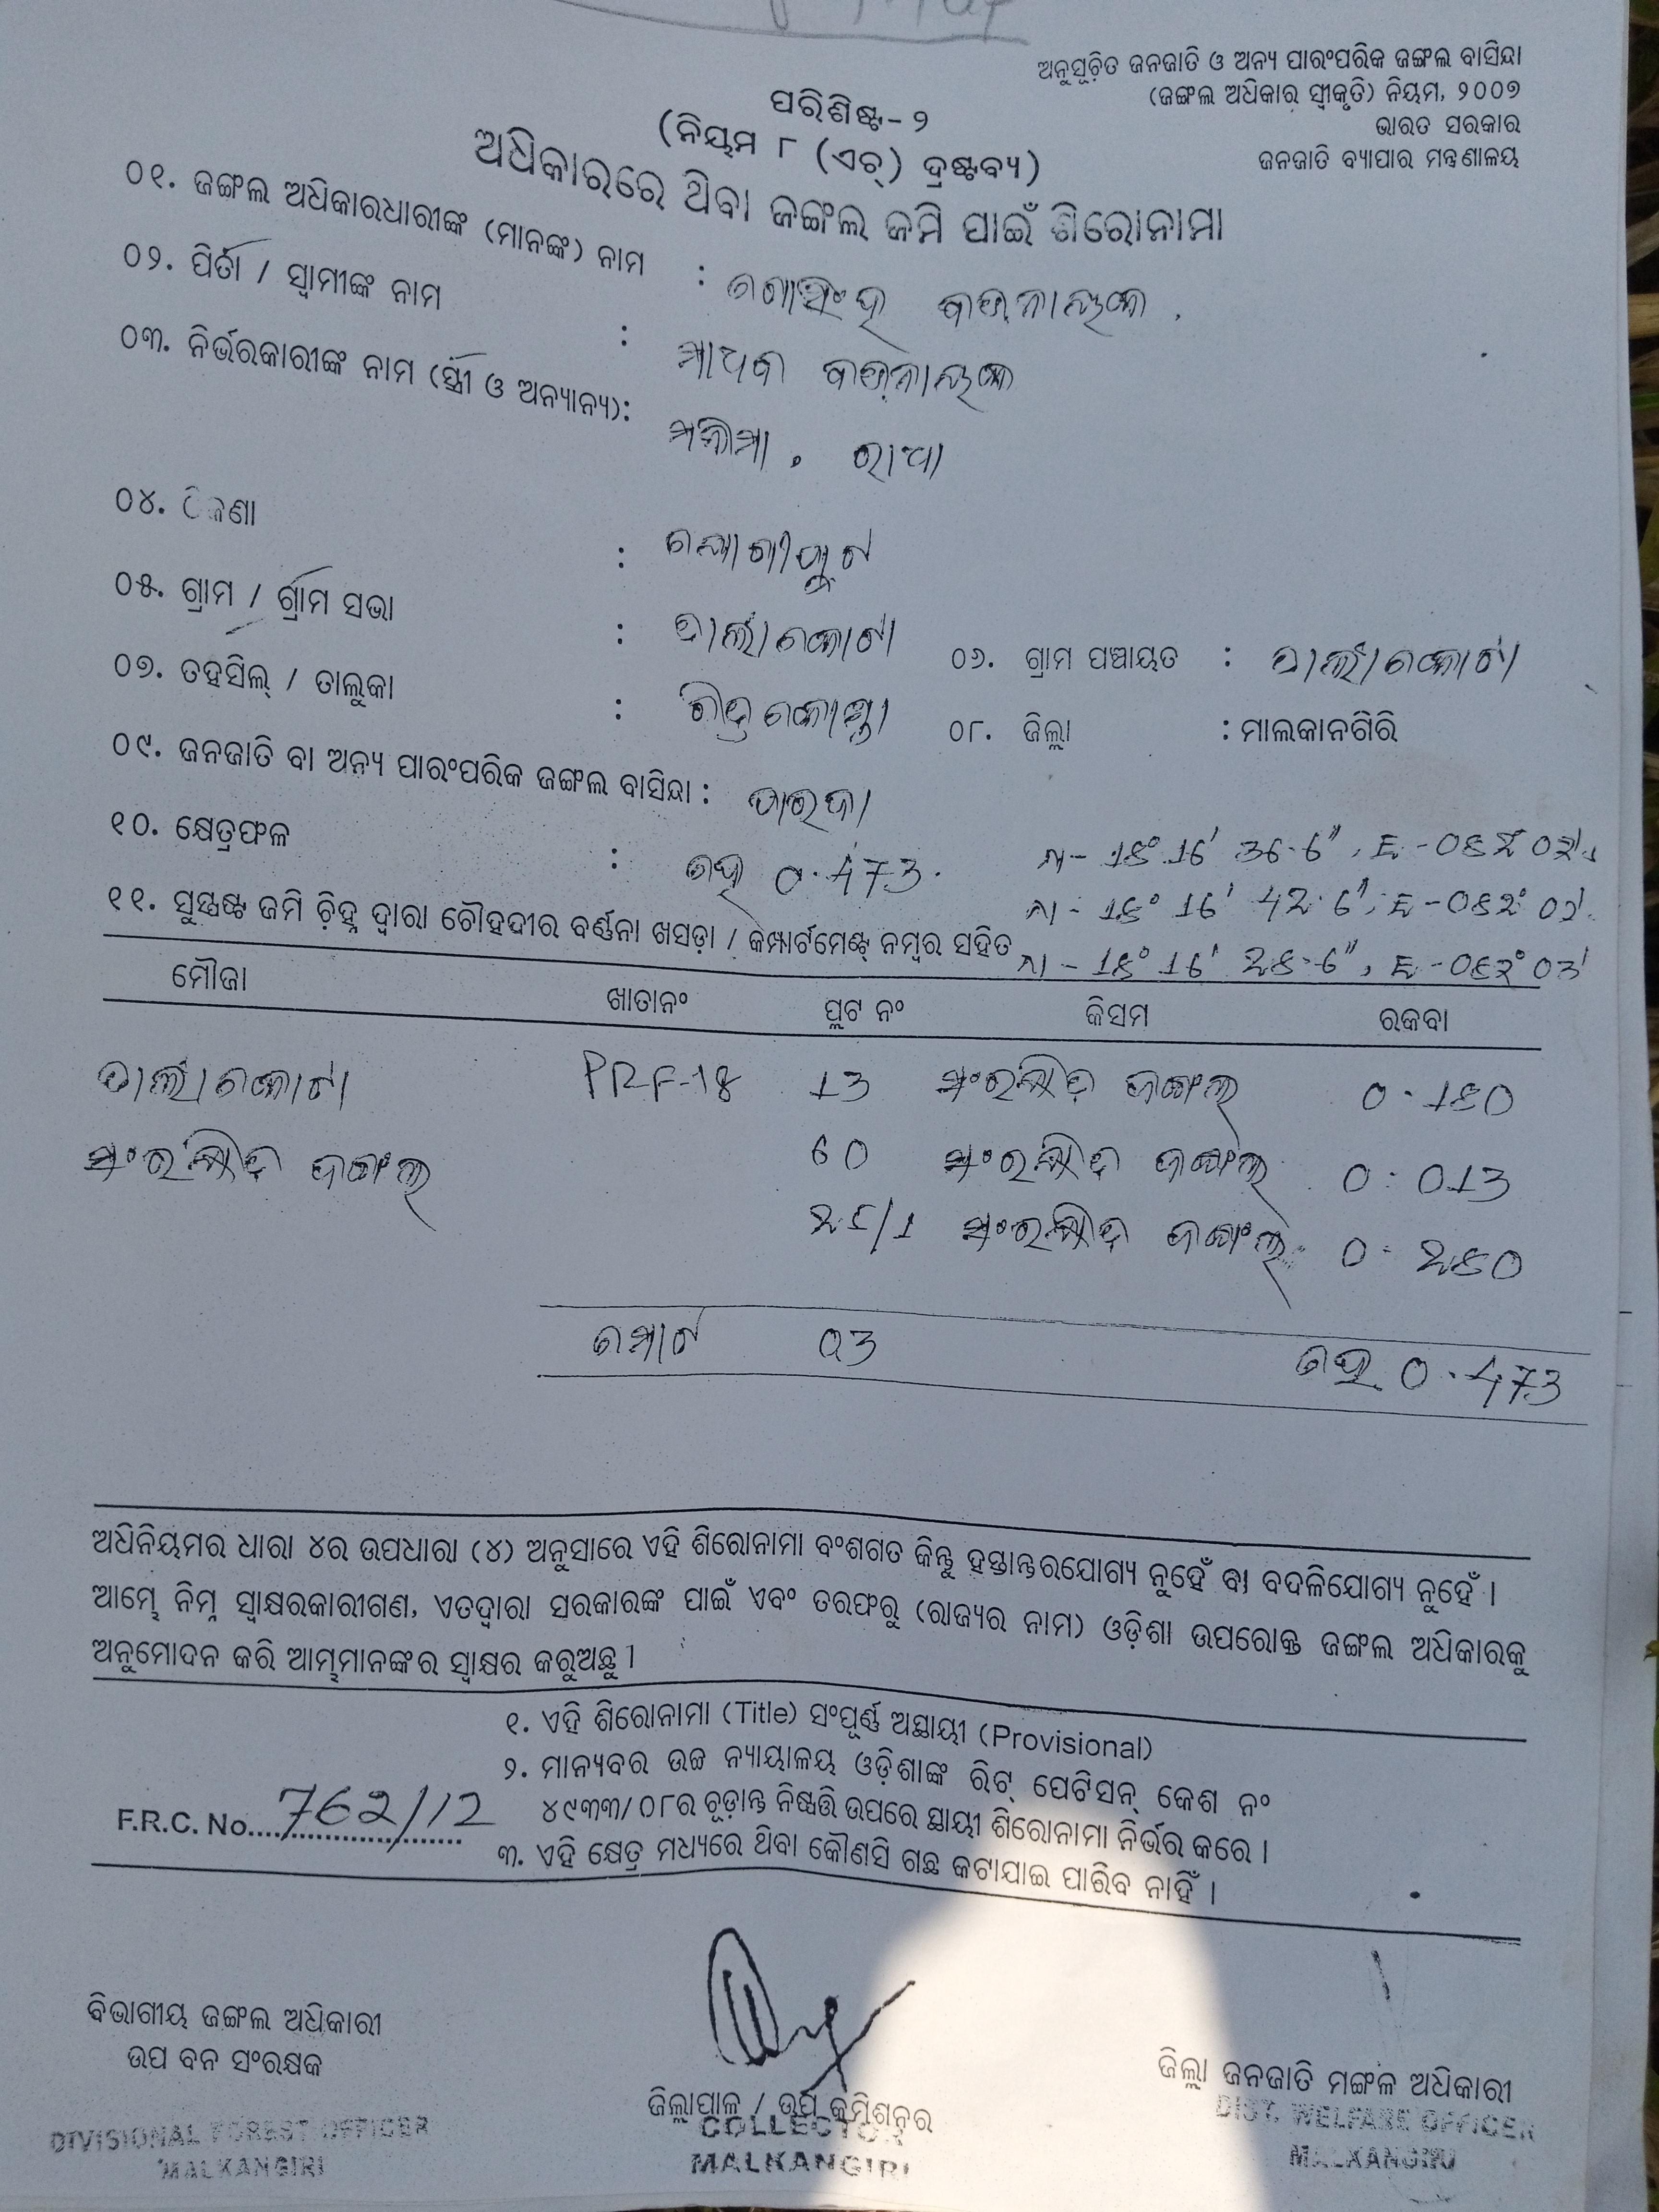 ଅନୁସୂଚିତ ଜନଜାତି ଓ ଅନ୍ୟ ପାରଂପରିକ ଜଙ୍ଗଲ ବାସିନ୍ଦା
(ଜଙ୍ଗଲ ଅଧିକାର ସ୍ୱୀକୃତି) ନିୟମ, ୨୦୦୭
ଭାରତ ସରକାର
ଜନଜାତି ବ୍ୟାପାର ମନ୍ତ୍ରଣାଳୟ
ପରିଶିଷ୍ଟ-୨
(ନିୟମ ୮ (ଏଚ୍) ଦ୍ରଷ୍ଟବ୍ୟ)
ଅଧିକାରରେ ଥିବା ଜଙ୍ଗଲ ଜମି ପାଇଁ ଶିରୋନାମା
୦୧. ଜଙ୍ଗଲ ଅଧିକାରଧାରୀଙ୍କ (ମାନଙ୍କ) ନାମ :
୦୨. ପିତା / ସ୍ୱାମୀଙ୍କ ନାମ : ମାଧବ
୦୩. ନିର୍ଭରକାରୀଙ୍କ ନାମ (ସ୍ତ୍ରୀ ଓ ଅନ୍ୟାନ୍ୟ): ରାଧା
୦୪. ଠିକଣା :
୦୫. ଗ୍ରାମ / ଗ୍ରାମ ସଭା : ପାର୍ଲାକୋଟା ୦୬. ଗ୍ରାମ ପଞ୍ଚାୟତ : ପାର୍ଲାକୋଟା
୦୭. ତହସିଲ୍ / ତାଲୁକା : ଚିତ୍ରକୋଣ୍ଡା ୦୮. ଜିଲ୍ଲା : ମାଲକାନଗିରି
୦୯. ଜନଜାତି ବା ଅନ୍ୟ ପାରଂପରିକ ଜଙ୍ଗଲ ବାସିନ୍ଦା : ପାରଜା
୧୦. କ୍ଷେତ୍ରଫଳ : ହେ 0.473. N- 18° 16' 36.6", E-082° 02'
N- 18° 16' 42.6", E-082° 02'
୧୧. ସୁସ୍ପଷ୍ଟ ଜମି ଚିହ୍ନ ଦ୍ୱାରା ଚୌହଦୀର ବର୍ଣ୍ଣନା ଖସଡ଼ା / କମ୍ପାର୍ଟମେଣ୍ଟ୍ ନମ୍ବର ସହିତ N- 18° 16' 28.6", E-082° 03'
ମୌଜା ଖାତାନଂ ପ୍ଲଟ ନଂ କିସମ ରକବା
ପାର୍ଲାକୋଟା PRF-18 13 ସଂରକ୍ଷିତ ଜଙ୍ଗଲ 0.180
ସଂରକ୍ଷିତ ଜଙ୍ଗଲ 60 ସଂରକ୍ଷିତ ଜଙ୍ଗଲ 0.013
ସଂରକ୍ଷିତ ଜଙ୍ଗଲ 0.280
ମୋଟ 03 ହେ 0.473
ଅଧିନିୟମର ଧାରା ୪ର ଉପଧାରା (୪) ଅନୁସାରେ ଏହି ଶିରୋନାମା ବଂଶଗତ କିନ୍ତୁ ହସ୍ତାନ୍ତରଯୋଗ୍ୟ ନୁହେଁ ବା ବଦଳିଯୋଗ୍ୟ ନୁହେଁ ।
ଆମ୍ଭେ ନିମ୍ନ ସ୍ୱାକ୍ଷରକାରୀଗଣ, ଏତଦ୍ୱାରା ସରକାରଙ୍କ ପାଇଁ ଏବଂ ତରଫରୁ (ରାଜ୍ୟର ନାମ) ଓଡ଼ିଶା ଉପରୋକ୍ତ ଜଙ୍ଗଲ ଅଧିକାରକୁ
ଅନୁମୋଦନ କରି ଆମ୍ଭମାନଙ୍କର ସ୍ୱାକ୍ଷର କରୁଅଛୁ ।
୧. ଏହି ଶିରୋନାମା (Title) ସଂପୂର୍ଣ୍ଣ ଅସ୍ଥାୟୀ (Provisional)
୨. ମାନ୍ୟବର ଉଚ୍ଚ ନ୍ୟାୟାଳୟ ଓଡ଼ିଶାଙ୍କ ରିଟ୍ ପେଟିସନ୍ କେଶ ନଂ
୪୯୩୩/୦୮ର ଚୂଡ଼ାନ୍ତ ନିଷ୍ପତ୍ତି ଉପରେ ସ୍ଥାୟୀ ଶିରୋନାମା ନିର୍ଭର କରେ ।
F.R.C. No. 762/12
୩. ଏହି କ୍ଷେତ୍ର ମଧ୍ୟରେ ଥିବା କୌଣସି ଗଛ କଟାଯାଇ ପାରିବ ନାହିଁ ।
ବିଭାଗୀୟ ଜଙ୍ଗଲ ଅଧିକାରୀ
ଉପ ବନ ସଂରକ୍ଷକ
DIVISIONAL FOREST OFFICER
MALKANGIRI
ଜିଲ୍ଲାପାଳ / ଉପ କମିଶନର
COLLECTOR
MALKANGIRI
ଜିଲ୍ଲା ଜନଜାତି ମଙ୍ଗଳ ଅଧିକାରୀ
DIST. WELFARE OFFICER
MALKANGIRI